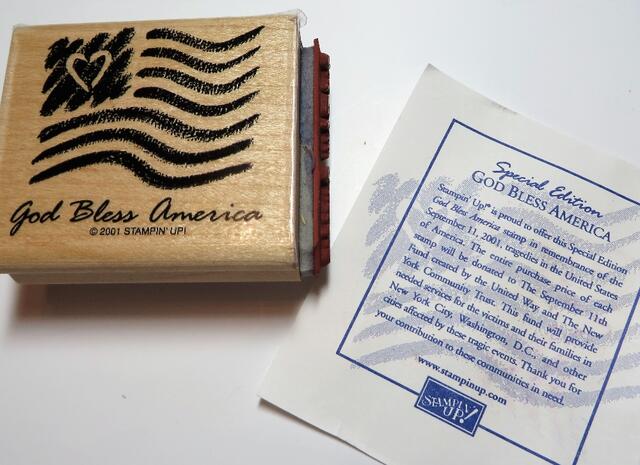 God Bless America
© 2001 STAMPIN' UP!
Special Edition
GOD BLESS AMERICA
Stampin' Up!® is proud to offer this Special Edition
God Bless America stamp in remembrance of the
September 11, 2001, tragedies in the United States
of America. The entire purchase price of each
stamp will be donated to The September 11th
Fund created by the United Way and The New
York Community Trust. This fund will provide
needed services for the victims and their families in
New York City, Washington, D.C., and other
cities affected by these tragic events. Thank you for
your contribution to these communities in need.
www.stampinup.com
STAMPIN'
UP!